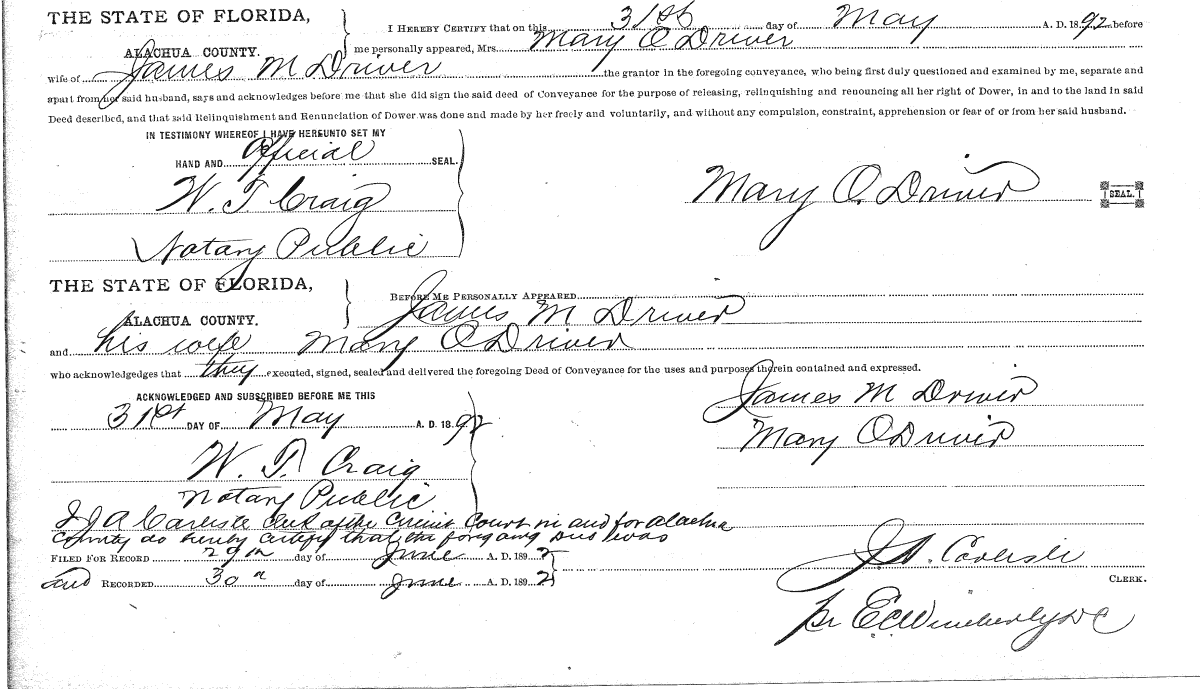 THE STATE OF FLORIDA,
ALACHUA COUNTY.
I HEREBY CERTIFY that on this 31st day of May A. D. 1892 before
me personally appeared, Mrs. Mary O Driver
wife of James M Driver the grantor in the foregoing conveyance, who being first duly questioned and examined by me, separate and
apart from her said husband, says and acknowledges before me that she did sign the said deed of Conveyance for the purpose of releasing, relinquishing and renouncing all her right of Dower, in and to the land in said
Deed described, and that said Relinquishment and Renunciation of Dower was done and made by her freely and voluntarily, and without any compulsion, constraint, apprehension or fear of or from her said husband.
IN TESTIMONY WHEREOF I HAVE HEREUNTO SET MY
HAND AND Official SEAL.
W. T. Craig
Notary Public
Mary O. Driver SEAL.
THE STATE OF FLORIDA,
ALACHUA COUNTY.
BEFORE ME PERSONALLY APPEARED
James M Driver
and his wife Mary O Driver
who acknowledgedges that they executed, signed, sealed and delivered the foregoing Deed of Conveyance for the uses and purposes therein contained and expressed.
ACKNOWLEDGED AND SUBSCRIBED BEFORE ME THIS
31st DAY OF May A. D. 1892
W. T. Craig
Notary Public
James M Driver
Mary O Driver
I J A Carlisle Clerk of the Circuit Court in and for Alachua
County do hereby certify that the forgoing was
FILED FOR RECORD 29th day of June A. D. 1892
and RECORDED 30th day of June A. D. 1892
J. A. Carlisle
CLERK.
Pr E C Wimberly DC